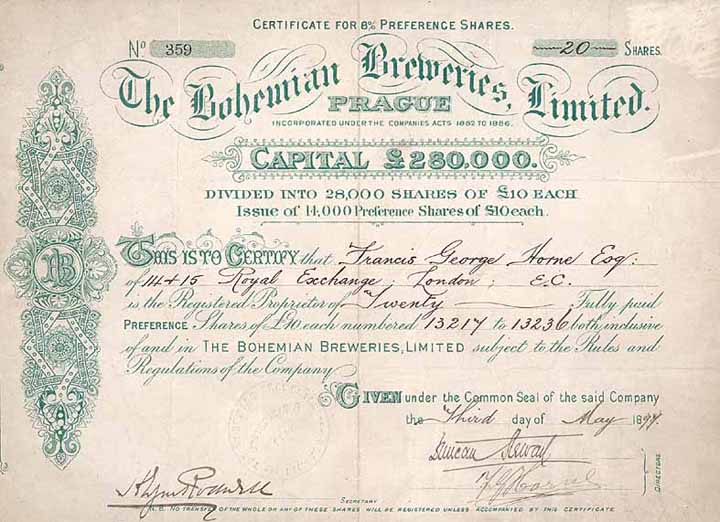 CERTIFICATE FOR 8% PREFERENCE SHARES.
No 359 20 SHARES.
The Bohemian Breweries, Limited.
PRAGUE
INCORPORATED UNDER THE COMPANIES ACTS 1862 TO 1886.
CAPITAL £280.000.
DIVIDED INTO 28,000 SHARES OF £10 EACH
Issue of 14,000 Preference Shares of £10 each.
THIS IS TO CERTIFY that Francis George Horne Esq:
of 14 + 15 Royal Exchange, London, E.C.
is the Registered Proprietor of Twenty Fully paid
PREFERENCE Shares of £10 each numbered 13217 to 13236 both inclusive
of and in THE BOHEMIAN BREWERIES, LIMITED subject to the Rules and
Regulations of the Company
BB
GIVEN under the Common Seal of the said Company
the Third day of May 1897.
Duncan Stewart
F G Horne
DIRECTORS
SECRETARY
N.B. NO TRANSFER OF THE WHOLE OR ANY OF THESE SHARES WILL BE REGISTERED UNLESS ACCOMPANIED BY THIS CERTIFICATE